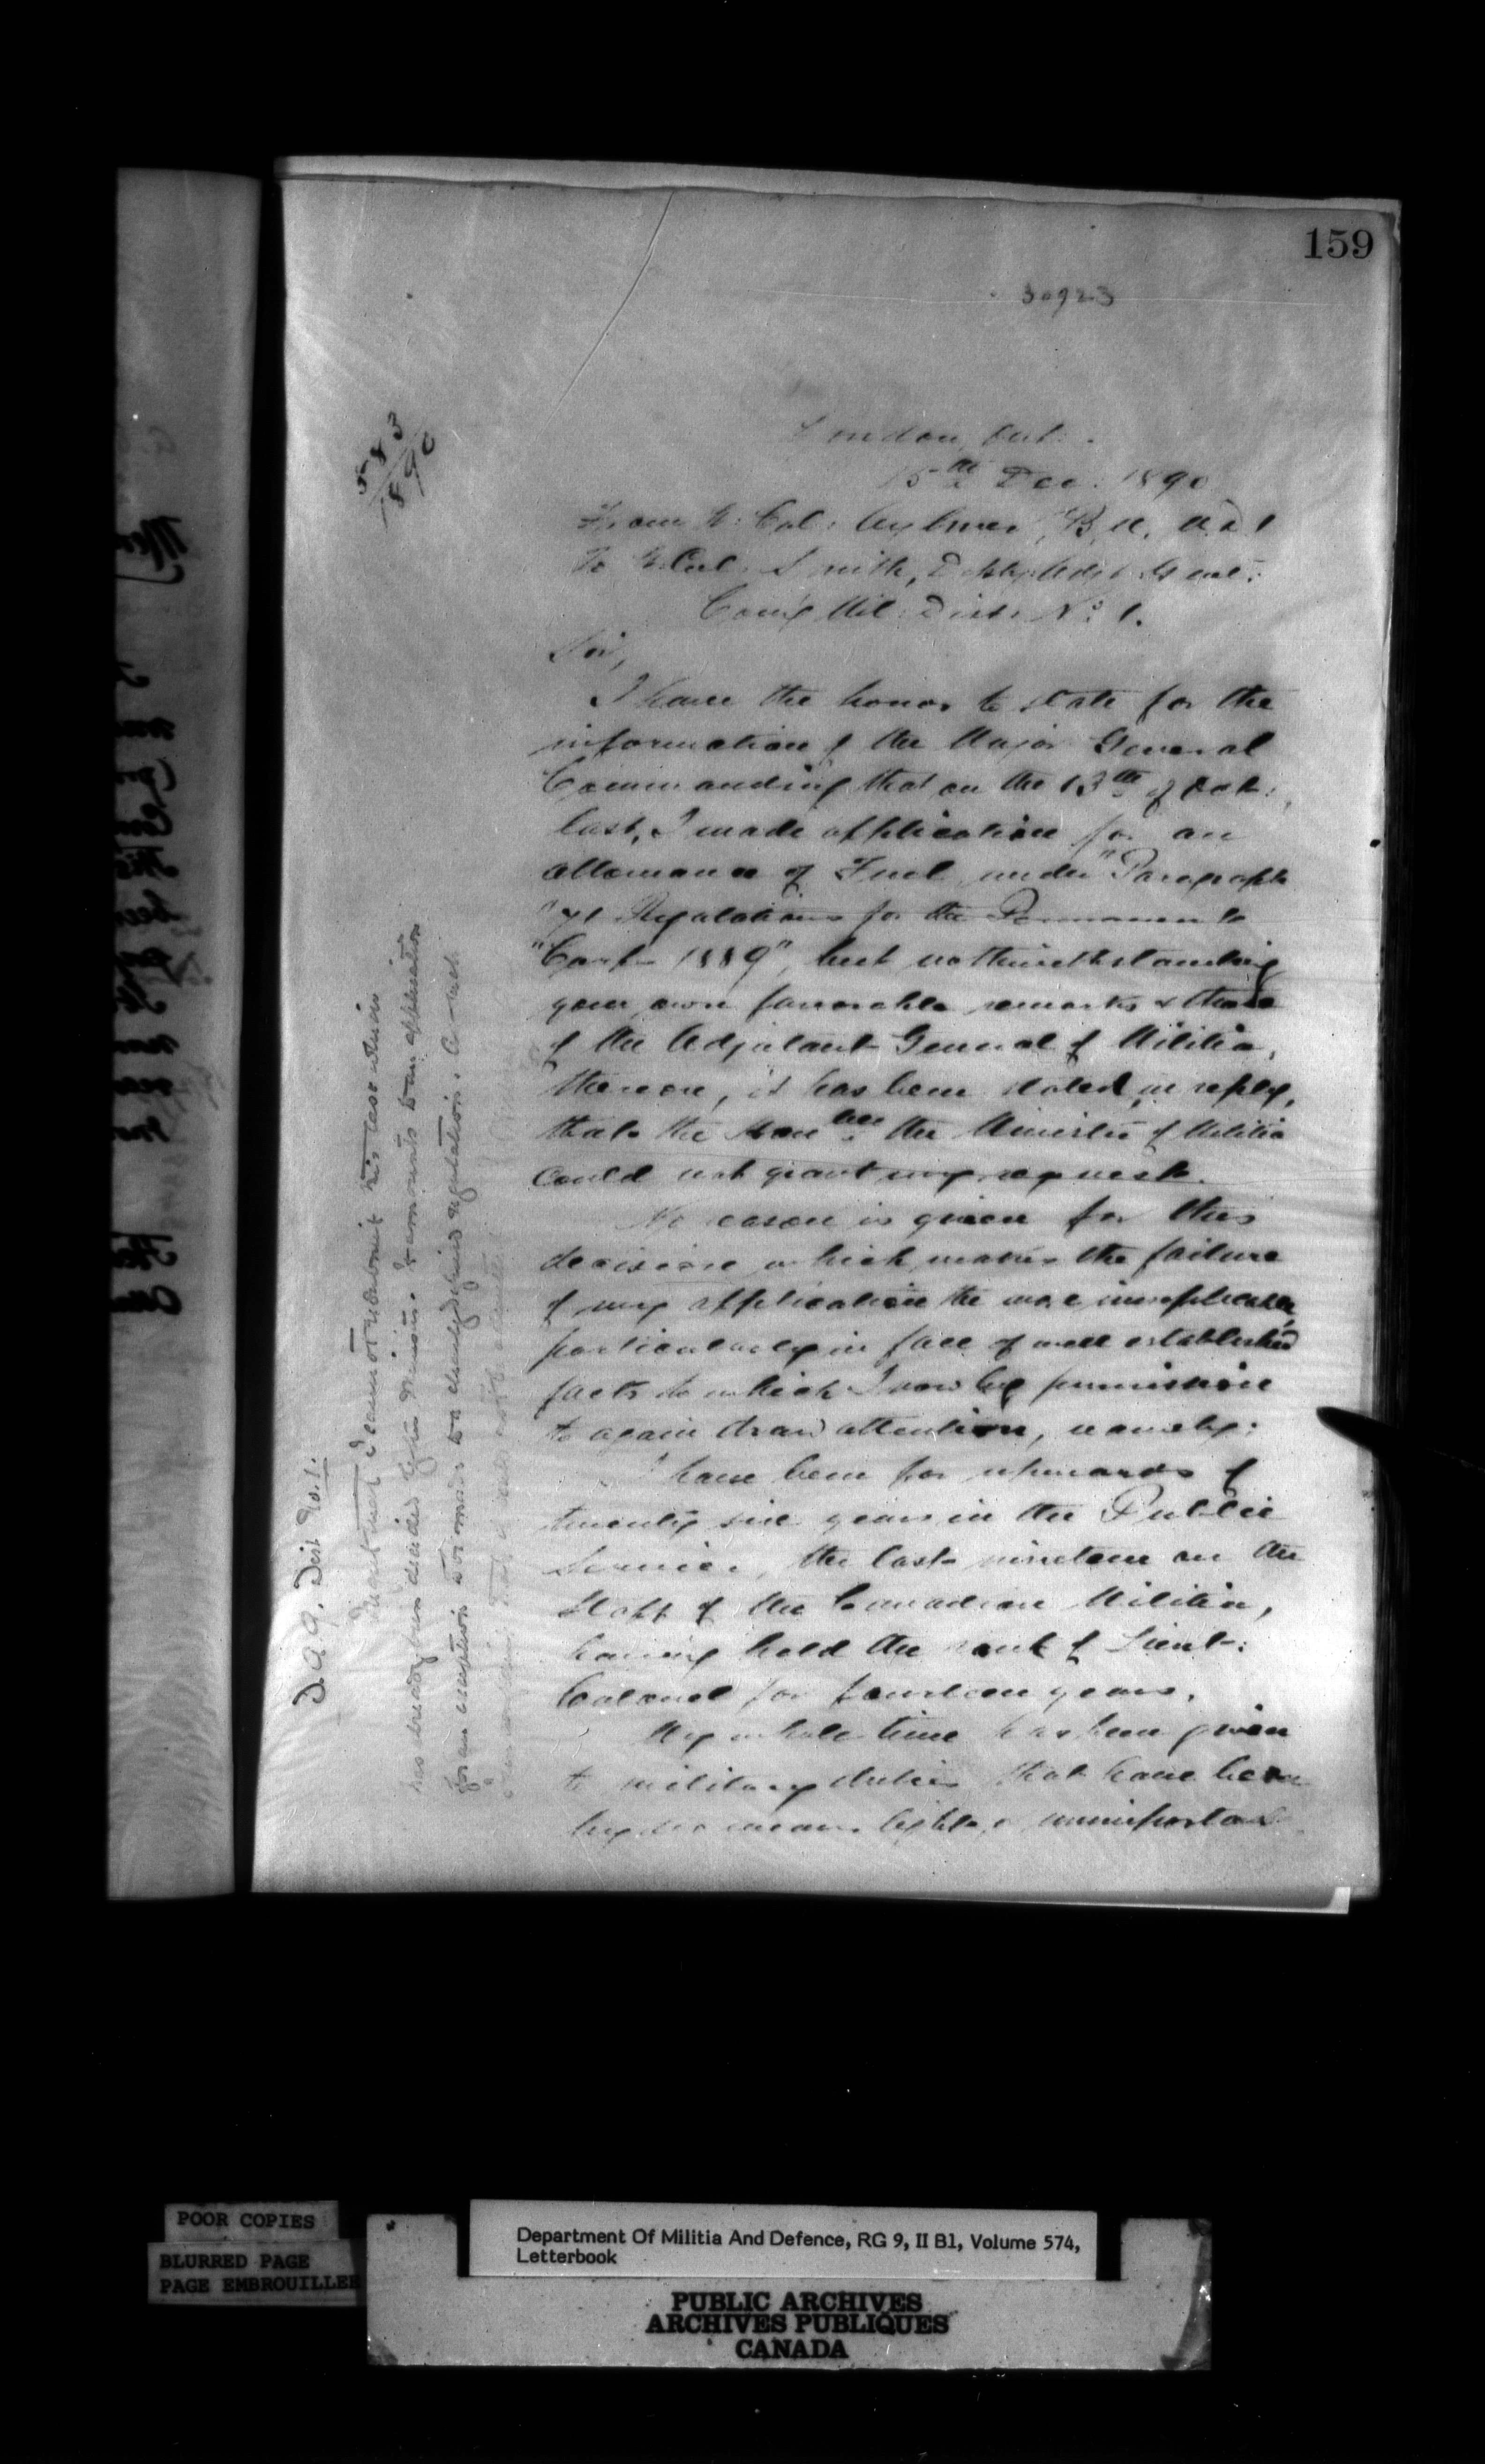 159
30923
583
1890
London, Ont.
15th Dec. 1890
From Lt: Col: Aylmer, B.M. M.D. 1
To Lt. Col. Smith, Depty Adjt Genl:
Com'g Mil: Dist: No: 1.
Sir,
I have the honor to state for the
information of the Major General
Commanding that on the 13th of Oct:,
last, I made application for an
allowance of Fuel under "Paragraph
"71 Regulations for the Permanent
"Corps 1889", but nothwithstanding
your own favorable remarks & those
of the Adjutant General of Militia,
thereon, it has been stated, in reply,
that the Honble the Minister of Militia
could not grant my request.
No reason is given for this
decision which makes the failure
of my application the more inexplicable,
particularly in face of well established
facts to which I now beg permission
to again draw attention, namely:
I have been for upwards of
twenty six years in the Public
Service, the last nineteen on the
Staff of the Canadian Militia,
having held the rank of Lieut:
Colonel for fourteen years.
My whole time has been given
to military duties that have been
by no means light or unimportant
D.A.G. Dist No. 1.
I regret that I cannot resubmit this case which
has already been decided by the Minister. It amounts to an application
for an exception to be made to a clearly defined regulation.
POOR COPIES
BLURRED PAGE
PAGE EMBROUILLEE
Department Of Militia And Defence, RG 9, II B1, Volume 574,
Letterbook
PUBLIC ARCHIVES
ARCHIVES PUBLIQUES
CANADA